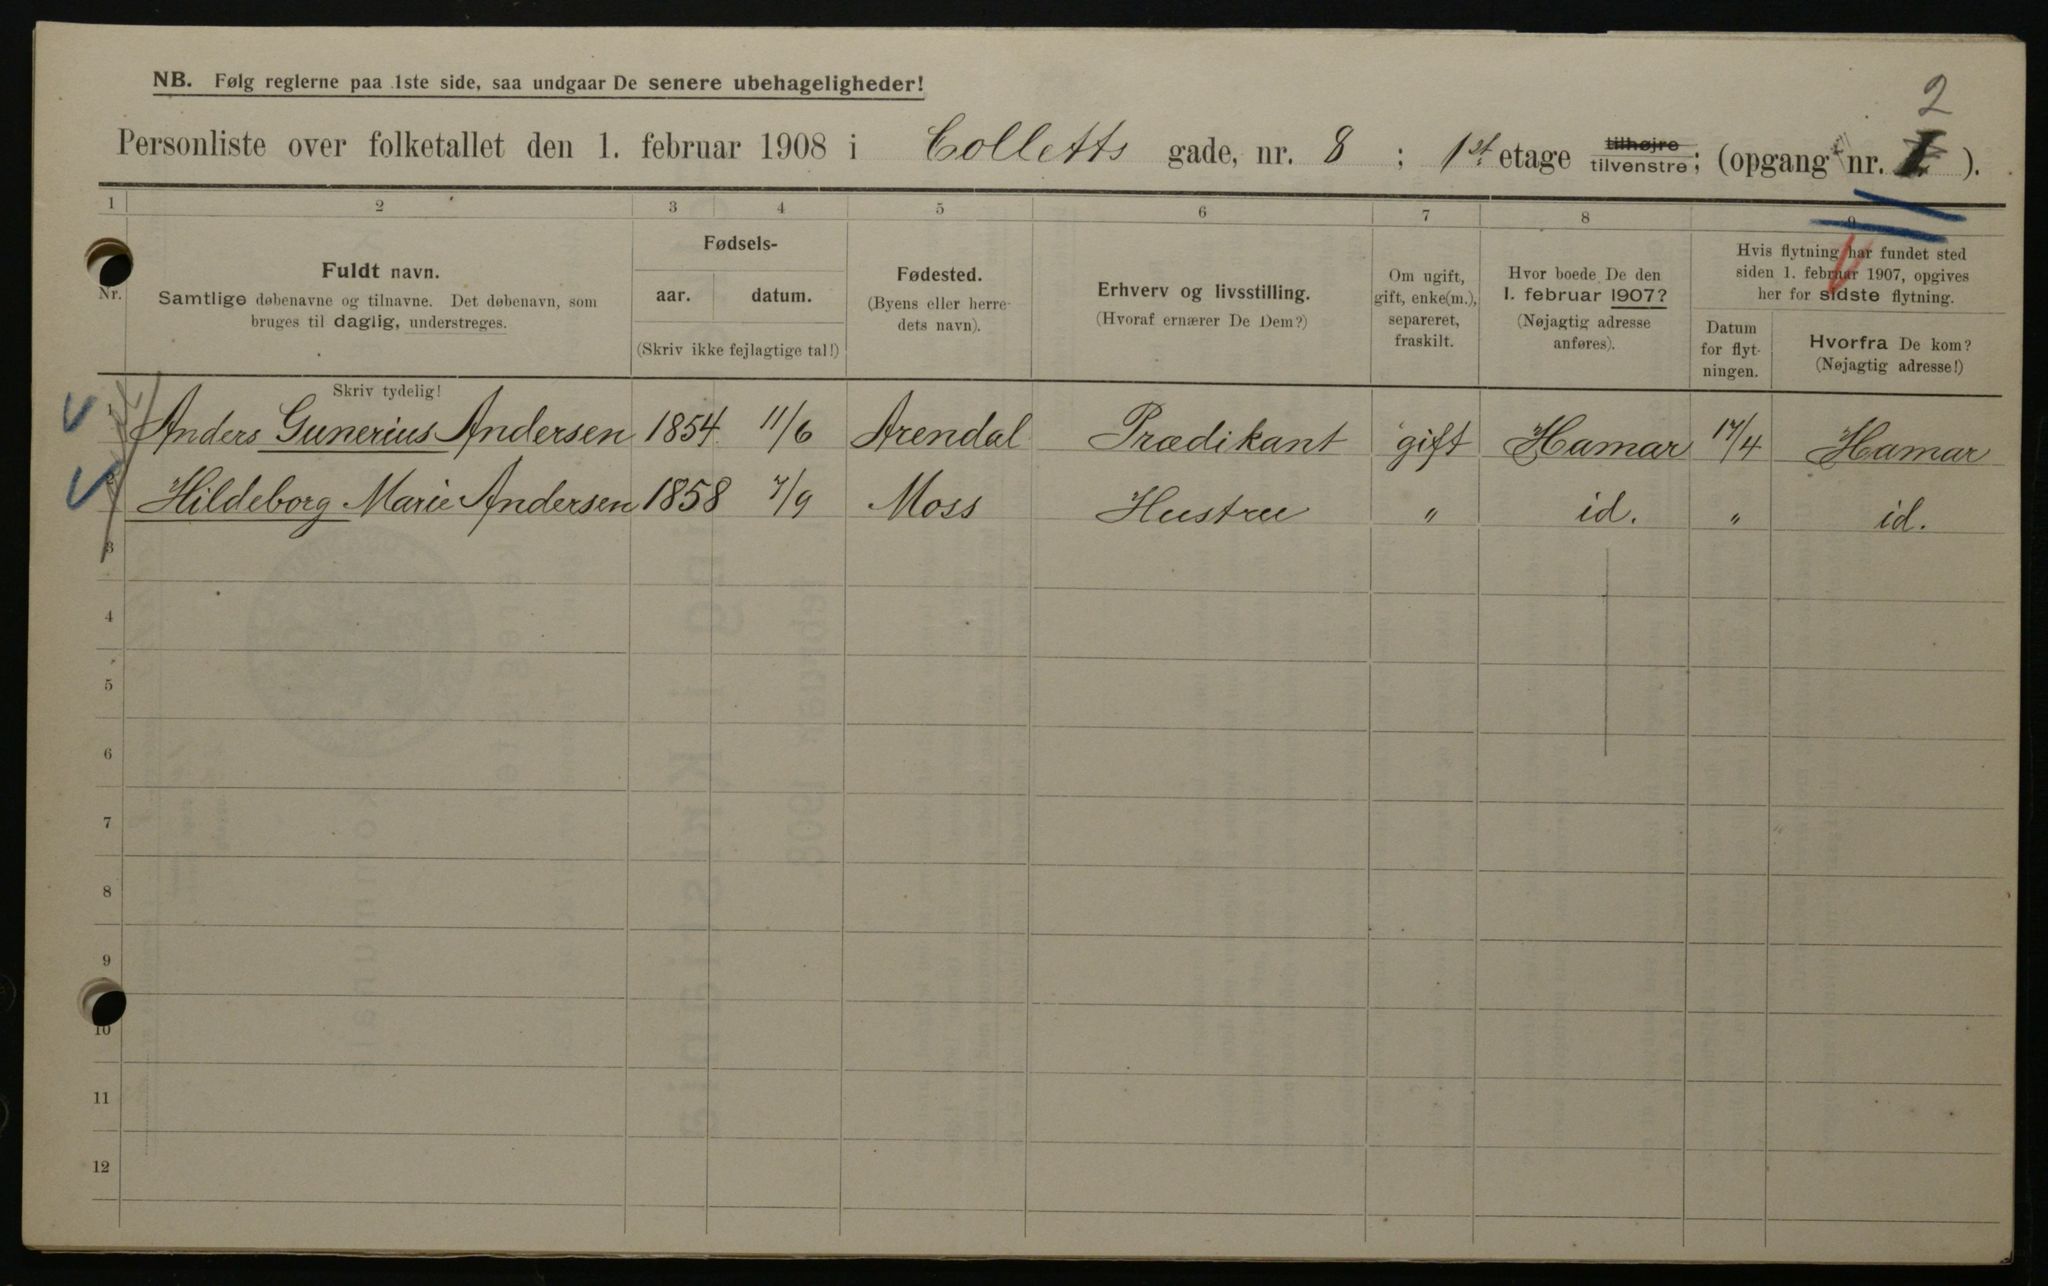 NB. Følg reglerne paa 1ste side, saa undgaar De senere ubehageligheder!
2
Personliste over folketallet den 1. februar 1908 i Colletts gade, nr. 8 ; 1st. etage tilhøjre tilvenstre; (opgang nr. 1 ).
1 2 3 4 5 6 7 8 9
Nr.
Fuldt navn.
Samtlige døbenavne og tilnavne. Det døbenavn, som
bruges til daglig, understreges.
Fødsels-
aar. datum.
(Skriv ikke fejlagtige tal!)
Fødested.
(Byens eller herre-
dets navn).
Erhverv og livsstilling.
(Hvoraf ernærer De Dem?)
Om ugift,
gift, enke(m.),
separeret,
fraskilt.
Hvor boede De den
1. februar 1907?
(Nøjagtig adresse
anføres).
Hvis flytning har fundet sted
siden 1. februar 1907, opgives
her for sidste flytning.
Datum
for flyt-
ningen.
Hvorfra De kom?
(Nøjagtig adresse!)
Skriv tydelig!
1 Anders Gunerius Andersen 1854 11/6 Arendal Prædikant gift Hamar 17/4 Hamar
2 Hildeborg Marie Andersen 1858 7/9 Moss Hustru " id. " id.
3
4
5
6
7
8
9
10
11
12